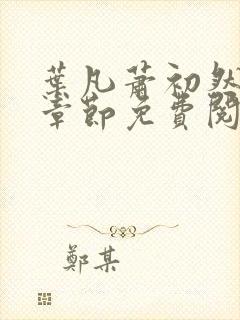 葉凡蕭初然
章節免費閱
鄭某